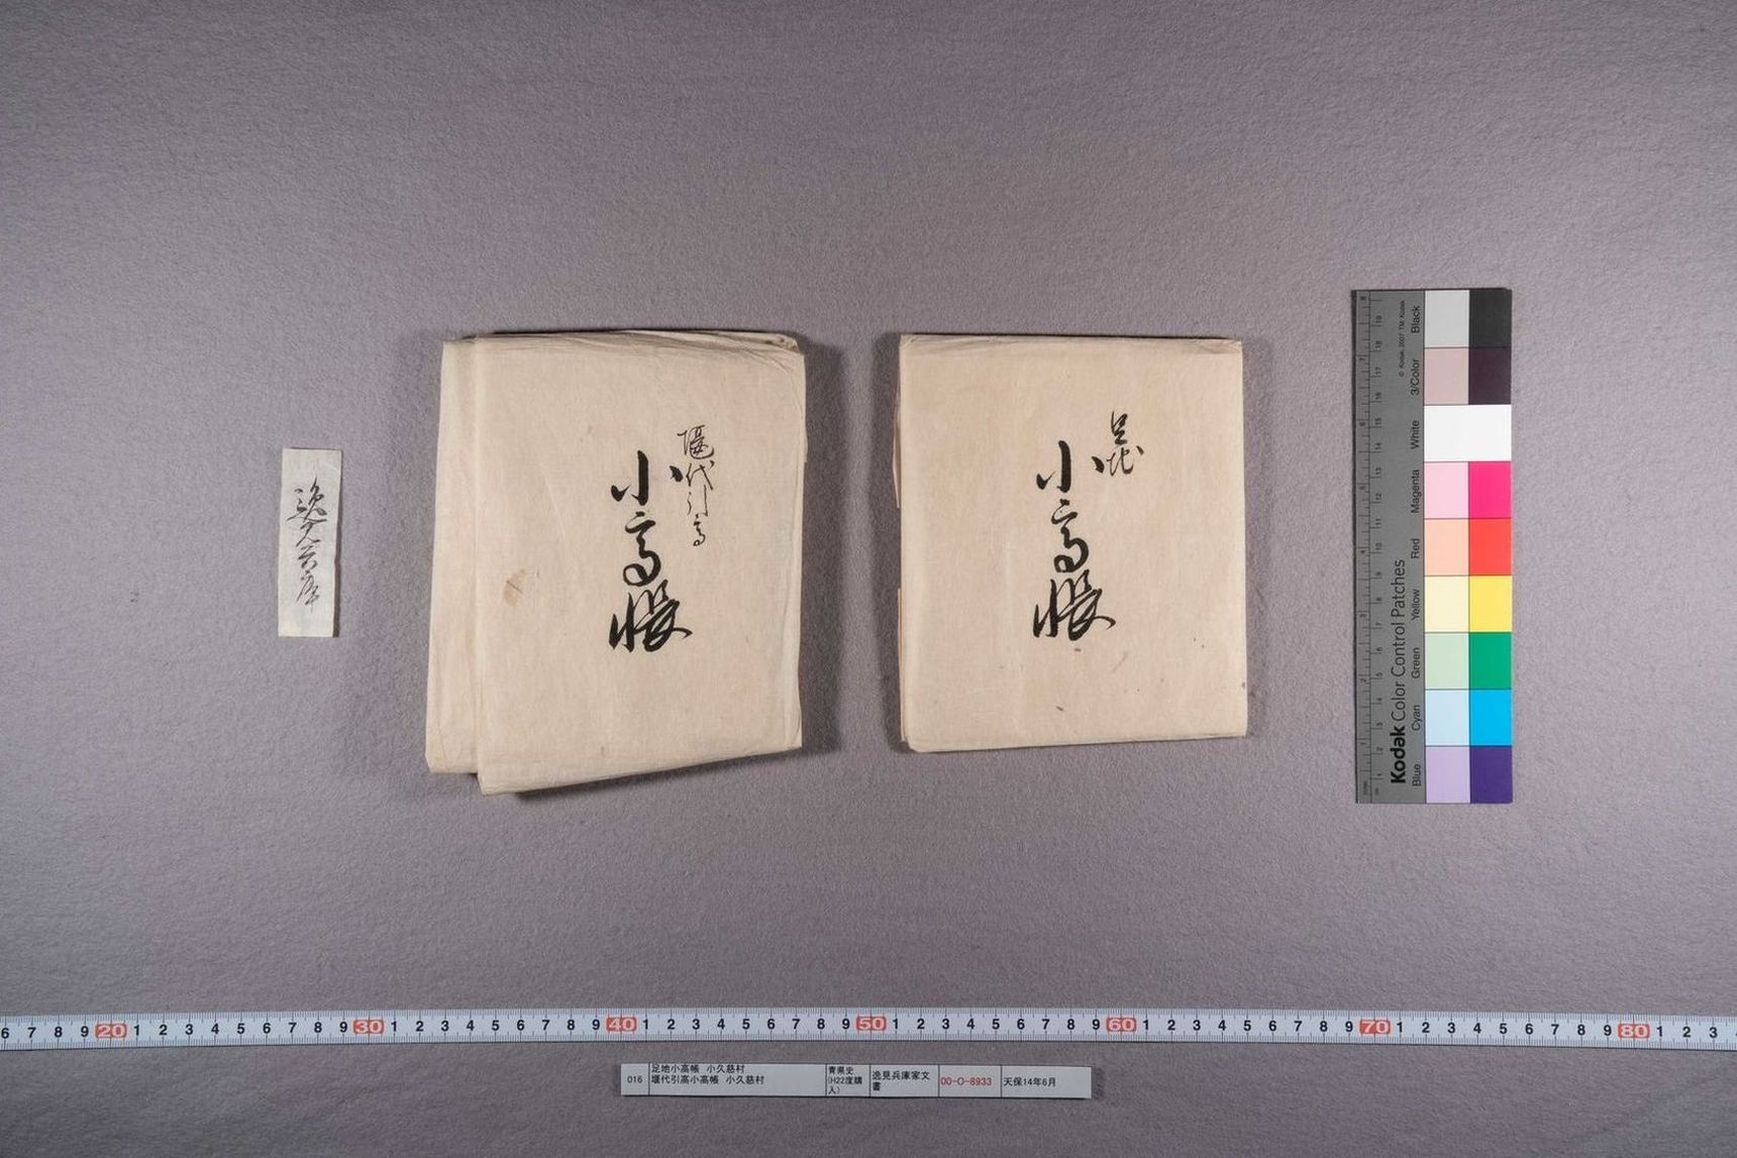 足地
小高帳
堰代引高
小高帳
逸見兵庫
© Kodak, 2007 TM: Kodak
Kodak Color Control Patches
Black
3/Color
White
Magenta
Red
Yellow
Green
Cyan
Blue
6 7 8 9 20 1 2 3 4 5 6 7 8 9 30 1 2 3 4 5 6 7 8 9 40 1 2 3 4 5 6 7 8 9 50 1 2 3 4 5 6 7 8 9 60 1 2 3 4 5 6 7 8 9 70 1 2 3 4 5 6 7 8 9 80 1 2 3
016
足地小高帳 小久慈村
堰代引高小高帳 小久慈村
青県史
(H22度購
入)
逸見兵庫家文
書
00-O-8933
天保14年6月